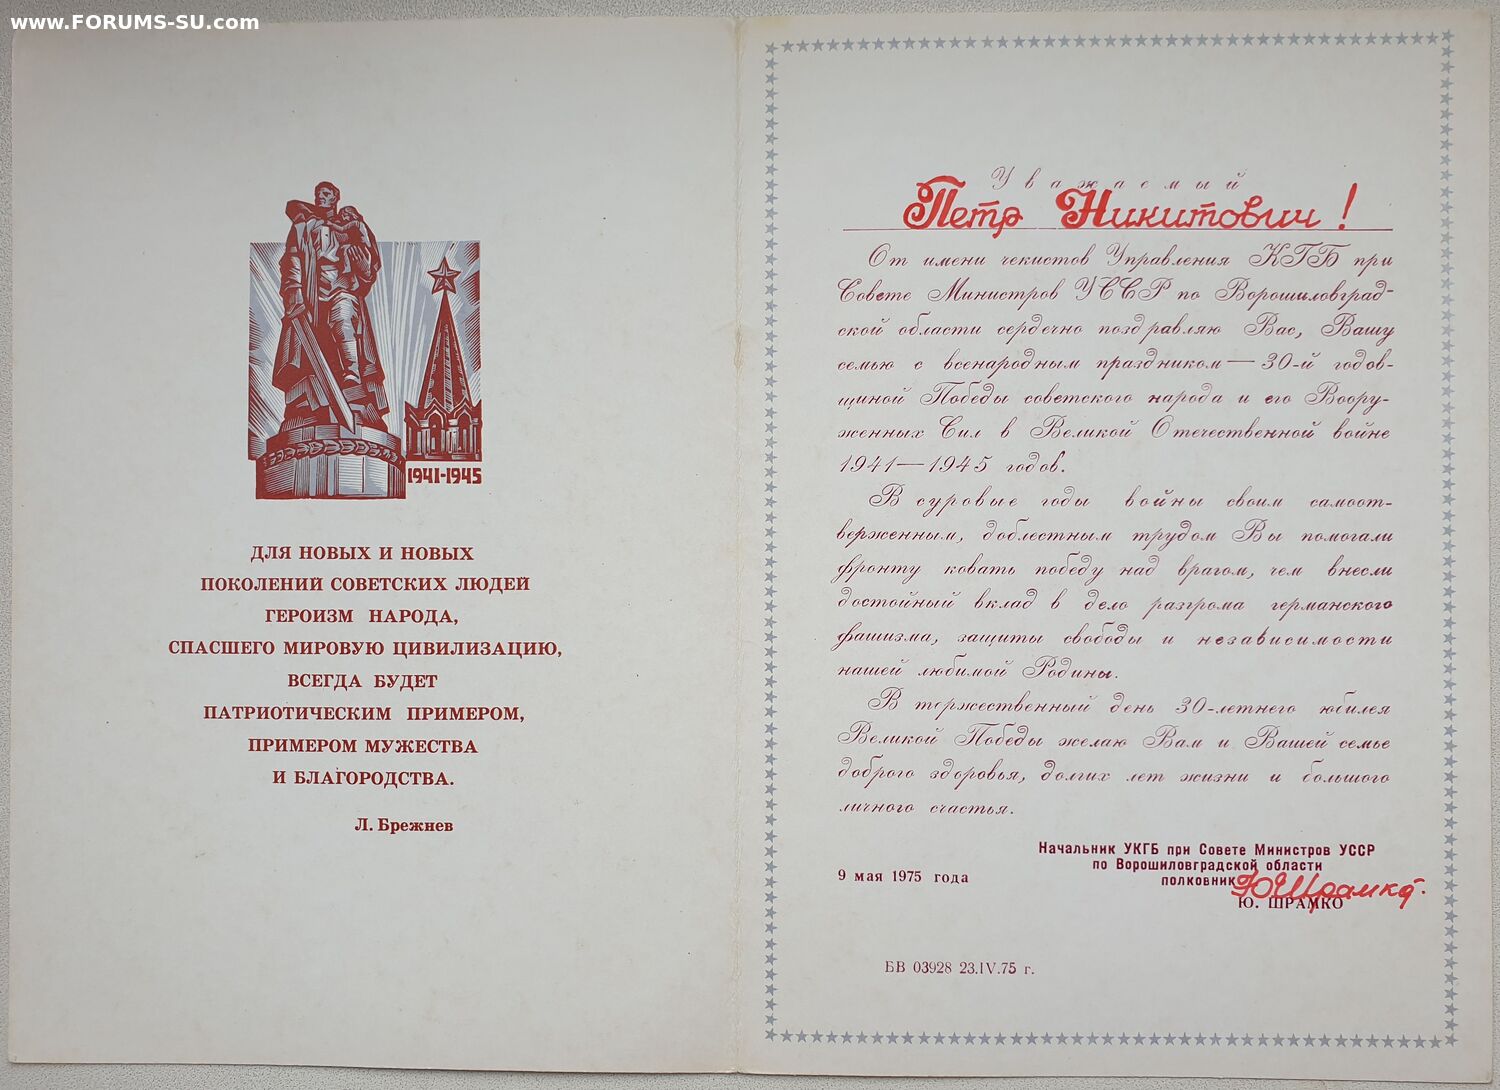 www.FORUMS-SU.com
1941-1945
ДЛЯ НОВЫХ И НОВЫХ
ПОКОЛЕНИЙ СОВЕТСКИХ ЛЮДЕЙ
ГЕРОИЗМ НАРОДА,
СПАСШЕГО МИРОВУЮ ЦИВИЛИЗАЦИЮ,
ВСЕГДА БУДЕТ
ПАТРИОТИЧЕСКИМ ПРИМЕРОМ,
ПРИМЕРОМ МУЖЕСТВА
И БЛАГОРОДСТВА.
Л. Брежнев
Уважаемый
Петр Никитович!
От имени чекистов Управления КГБ при
Совете Министров УССР по Ворошиловград-
ской области сердечно поздравляю Вас, Вашу
семью с всенародным праздником — 30-й годов-
щиной Победы советского народа и его Воору-
женных Сил в Великой Отечественной войне
1941—1945 годов.
В суровые годы войны своим самоот-
верженным, доблестным трудом Вы помогали
фронту ковать победу над врагом, чем внесли
достойный вклад в дело разгрома германского
фашизма, защиты свободы и независимости
нашей любимой Родины.
В торжественный день 30-летнего юбилея
Великой Победы желаю Вам и Вашей семье
доброго здоровья, долгих лет жизни и большого
личного счастья.
Начальник УКГБ при Совете Министров УССР
по Ворошиловградской области
полковник ЮШрамко
9 мая 1975 года
Ю. ШРАМКО
БВ 03928 23.IV.75 г.